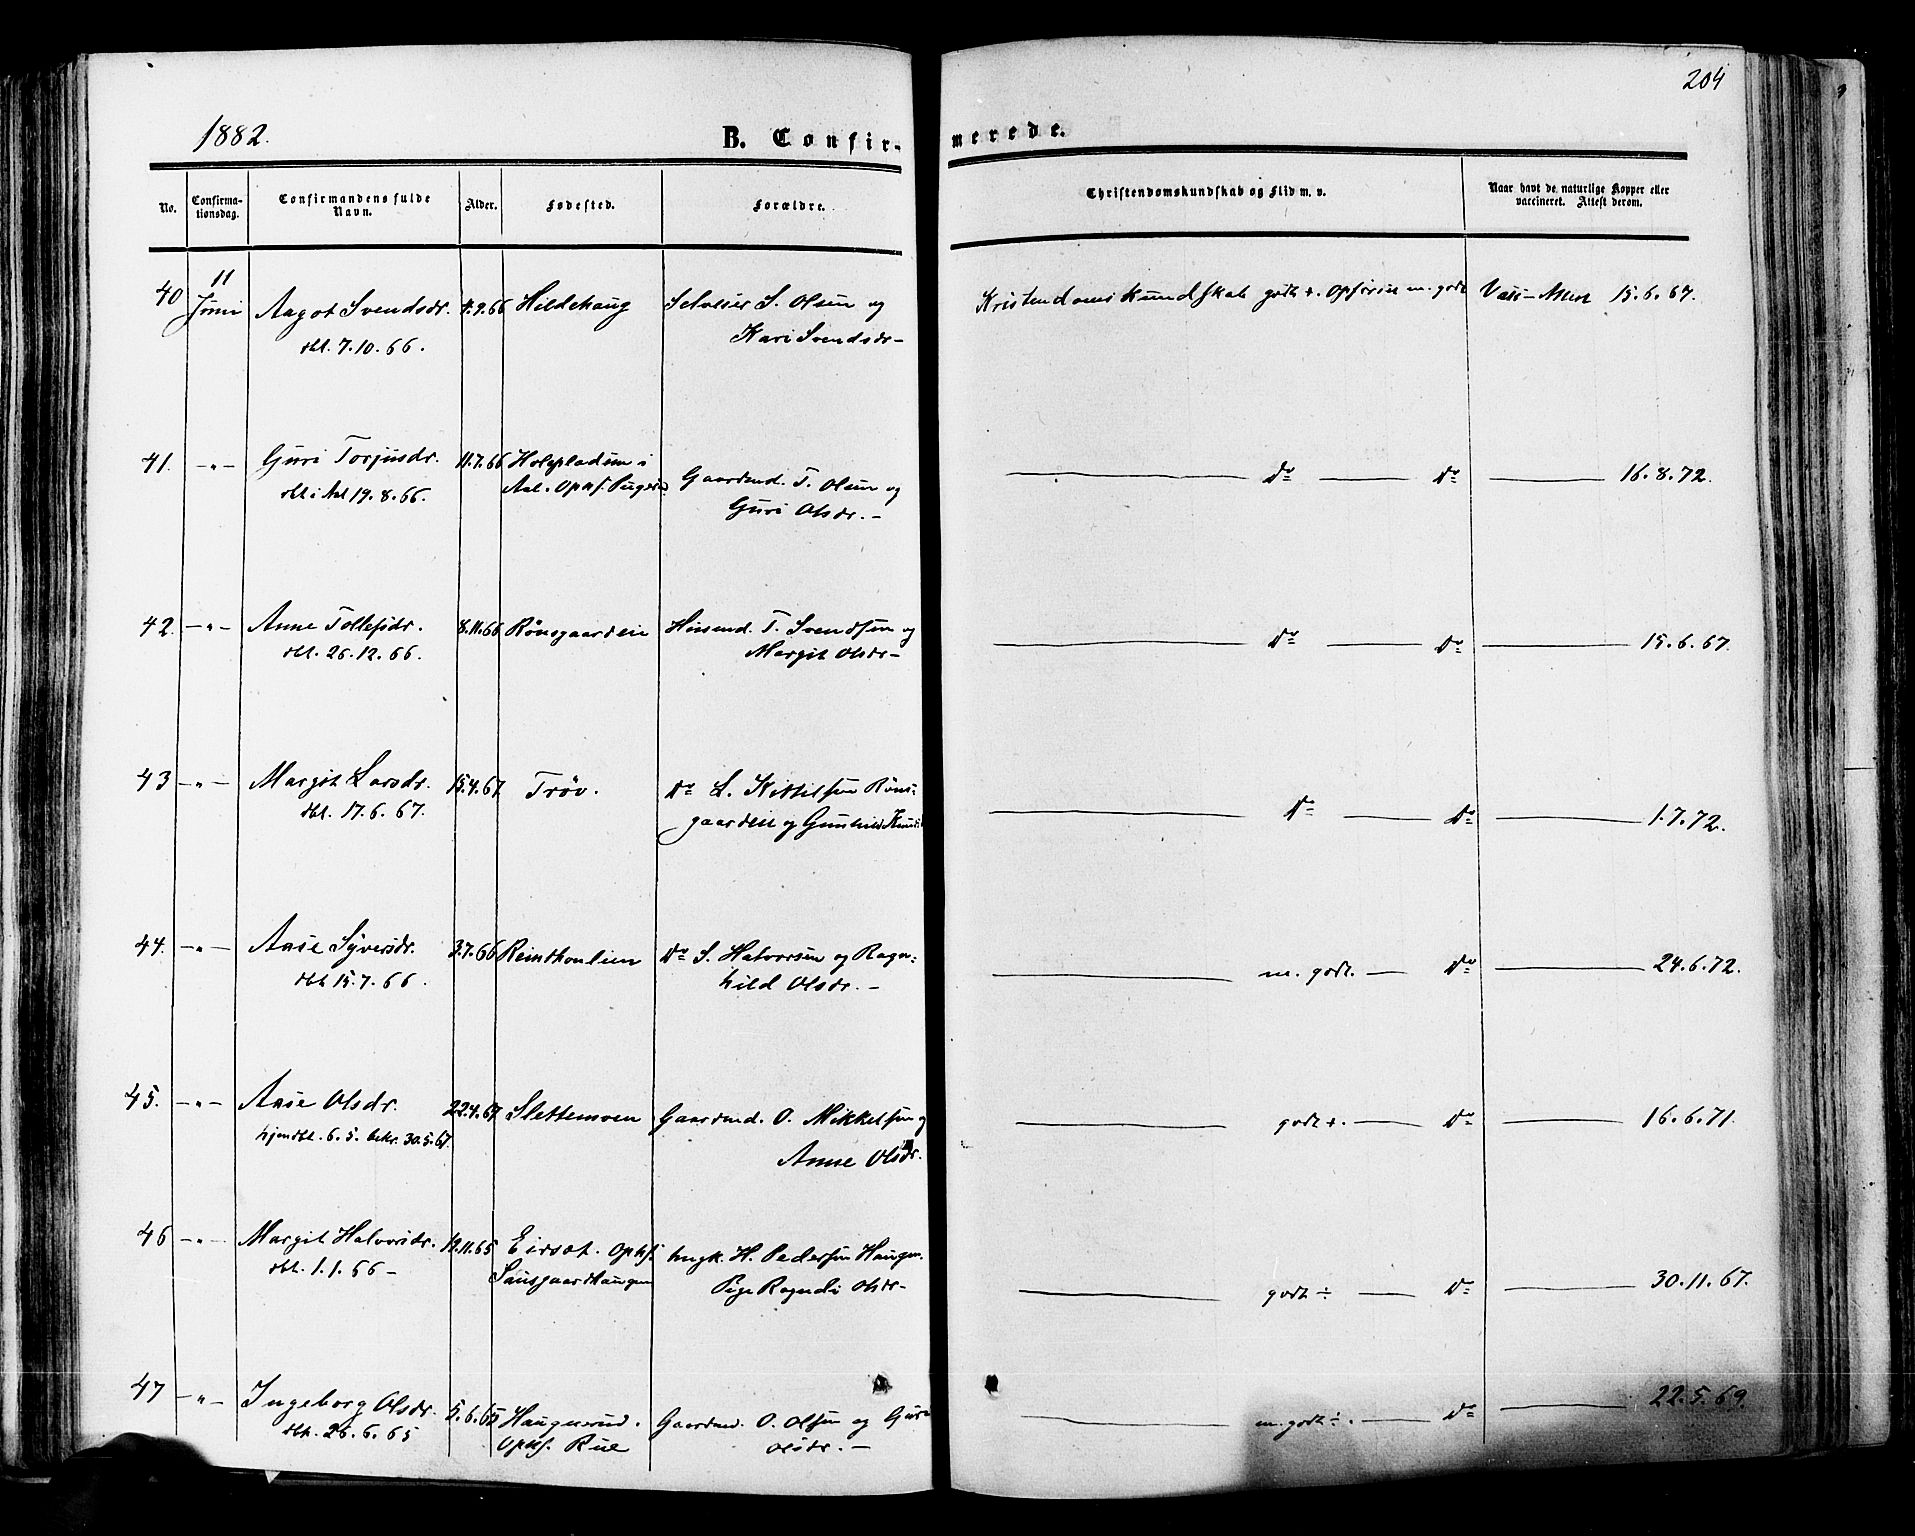 204
1882.
B. Confirmerede.
No.
Confirmationsdag.
Confirmandens fulde Navn.
Alder.
Fødested.
Forældre.
Christendomskundskab og Flid m. v.
Naar havt de naturlige Kopper eller vaccineret. Attest derom.
40 11 Juni Aagot Svendsdr. 4.9.66 Hildehaug Selveier S. Olsen og Kristendomskundskab godt +. Opførsel m. godt 15.6.67.
dbt. 7.10.66. Kari Svendsdr -
41. -"- Guri Torjusdr. 11.7.66 i Gaardmd. T. Olsen og Do Do 16.8.72.
dbt i Aal 19.8.66. Aal. Ophf. Guri Olsdr. -
42. -"- Anne Tollefsdr. 8.11.66 Rønsgaarden Husmd. T. Svendsen og Do Do 15.6.67.
dbt. 26.12.66. Margit Olsdr -
43 -"- Margit Larsdr. 15.4.67 Trøv. Do L. Kittilsen Røns- Do Do 1.7.72.
dbt. 17.6.67. gaarden og Gunhild
44. -"- Aase Syversdr. 3.7.66 Do S. Halvorsen og Ragn- m. godt. Do 24.6.72.
dbt 15.7.66. hild Olsdr. -
45. -"- Aase Olsdr. 22.4.67 Slettemoen Gaardmd. O. Mikkelsen og godt +. Do 16.6.71.
hjemdbt. 6.5. bekr. 30.5.67. Anne Olsdr.
46 -"- Margit Halvorsdr. 19.11.65 Ophf. Ungk. H. Pedersen Haugen. godt ÷ Do 30.11.67.
dbt. 1.1.66 - Pige Ragndi Olsdr -
47 -"- Ingeborg Olsdr. 5.6.65 Haugnerud. Gaardmd. O. Olsen og m. godt ÷. Do 22.5.69.
dbt. 26.6.65 Ophf. Rue Olsdr. -